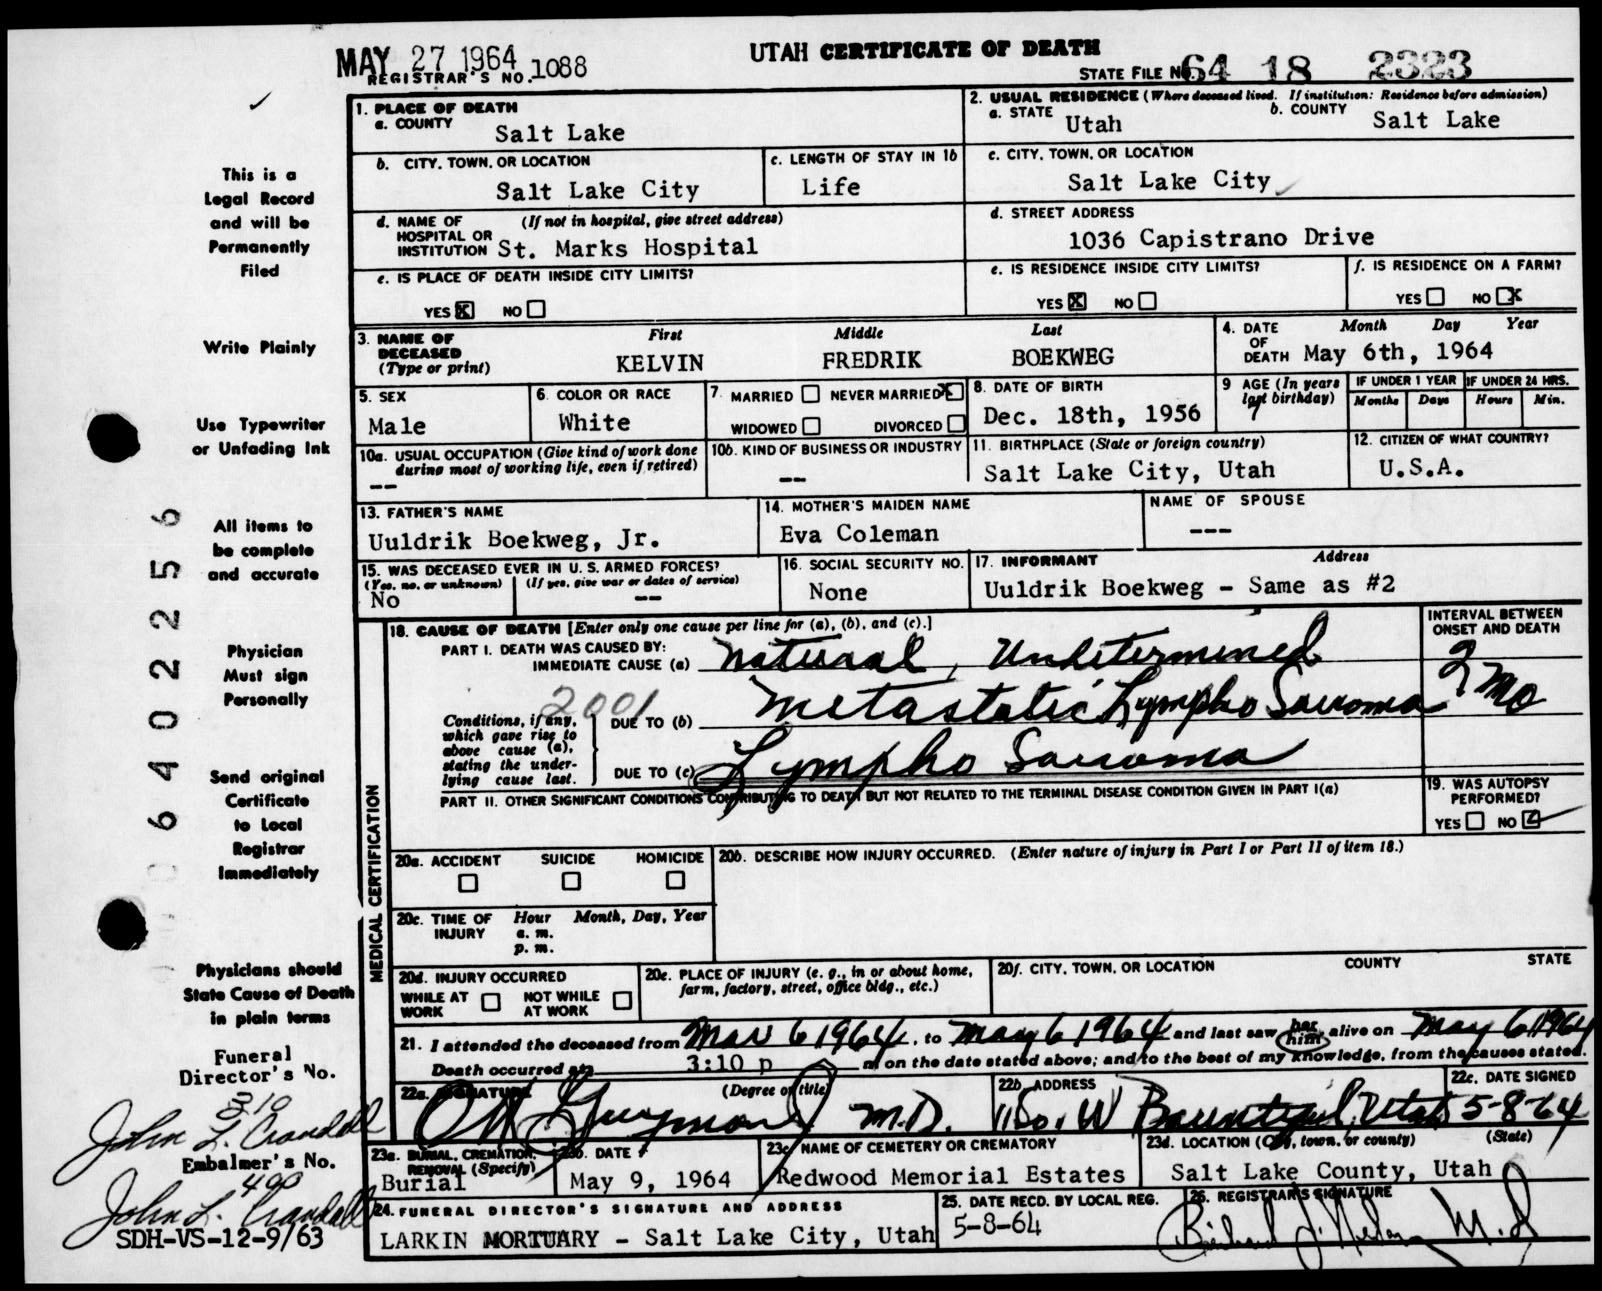 MAY 27 1964
REGISTRAR'S NO. 1088
UTAH CERTIFICATE OF DEATH
STATE FILE NO. 64 18 2323
This is a
Legal Record
and will be
Permanently
Filed
Write Plainly
Use Typewriter
or Unfading Ink
All items to
be complete
and accurate
Physician
Must sign
Personally
Send original
Certificate
to Local
Registrar
Immediately
Physicians should
State Cause of Death
in plain terms
Funeral
Director's No.
310
John L. Crandall
Embalmer's No.
400
John L. Crandall
SDH-VS-12-9/63
64022256
1. PLACE OF DEATH
a. COUNTY Salt Lake
2. USUAL RESIDENCE (Where deceased lived. If institution: Residence before admission)
a. STATE Utah b. COUNTY Salt Lake
b. CITY, TOWN, OR LOCATION
Salt Lake City
c. LENGTH OF STAY IN 1b
Life
c. CITY, TOWN, OR LOCATION
Salt Lake City
d. NAME OF HOSPITAL OR INSTITUTION (If not in hospital, give street address)
St. Marks Hospital
d. STREET ADDRESS
1036 Capistrano Drive
e. IS PLACE OF DEATH INSIDE CITY LIMITS?
YES X NO
e. IS RESIDENCE INSIDE CITY LIMITS?
YES X NO
f. IS RESIDENCE ON A FARM?
YES NO X
3. NAME OF DECEASED (Type or print)
First Middle Last
KELVIN FREDRIK BOEKWEG
4. DATE OF DEATH Month Day Year
May 6th, 1964
5. SEX
Male
6. COLOR OR RACE
White
7. MARRIED NEVER MARRIED X
WIDOWED DIVORCED
8. DATE OF BIRTH
Dec. 18th, 1956
9 AGE (In years last birthday)
7
IF UNDER 1 YEAR IF UNDER 24 HRS.
Months Days Hours Min.
10a. USUAL OCCUPATION (Give kind of work done during most of working life, even if retired)
--
10b. KIND OF BUSINESS OR INDUSTRY
--
11. BIRTHPLACE (State or foreign country)
Salt Lake City, Utah
12. CITIZEN OF WHAT COUNTRY?
U.S.A.
13. FATHER'S NAME
Uuldrik Boekweg, Jr.
14. MOTHER'S MAIDEN NAME
Eva Coleman
NAME OF SPOUSE
---
15. WAS DECEASED EVER IN U. S. ARMED FORCES?
(Yes, no, or unknown) (If yes, give war or dates of service)
No --
16. SOCIAL SECURITY NO.
None
17. INFORMANT Address
Uuldrik Boekweg - Same as #2
MEDICAL CERTIFICATION
18. CAUSE OF DEATH [Enter only one cause per line for (a), (b), and (c).]
INTERVAL BETWEEN ONSET AND DEATH
PART I. DEATH WAS CAUSED BY:
IMMEDIATE CAUSE (a) Natural, Undetermined
2001
Conditions, if any, which gave rise to above cause (a), stating the underlying cause last.
DUE TO (b) Metastatic Lympho Sarcoma 2 Mo
DUE TO (c) Lympho Sarcoma
PART II. OTHER SIGNIFICANT CONDITIONS CONTRIBUTING TO DEATH BUT NOT RELATED TO THE TERMINAL DISEASE CONDITION GIVEN IN PART I(a)
19. WAS AUTOPSY PERFORMED?
YES NO
20a. ACCIDENT SUICIDE HOMICIDE
20b. DESCRIBE HOW INJURY OCCURRED. (Enter nature of injury in Part I or Part II of item 18.)
20c. TIME OF INJURY Hour Month, Day, Year
a. m.
p. m.
20d. INJURY OCCURRED
WHILE AT WORK NOT WHILE AT WORK
20e. PLACE OF INJURY (e. g., in or about home, farm, factory, street, office bldg., etc.)
20f. CITY, TOWN, OR LOCATION COUNTY STATE
21. I attended the deceased from Mar 6 1964, to May 6 1964 and last saw her him alive on May 6 1964
Death occurred at 3:10 p m on the date stated above; and to the best of my knowledge, from the causes stated.
22a. SIGNATURE (Degree or title)
M.D.
22b. ADDRESS
Bountiful, Utah
22c. DATE SIGNED
5-8-64
23a. BURIAL, CREMATION, REMOVAL (Specify)
Burial
23b. DATE
May 9, 1964
23c. NAME OF CEMETERY OR CREMATORY
Redwood Memorial Estates
23d. LOCATION (City, town, or county) (State)
Salt Lake County, Utah
24. FUNERAL DIRECTOR'S SIGNATURE AND ADDRESS
LARKIN MORTUARY - Salt Lake City, Utah
25. DATE RECD. BY LOCAL REG.
5-8-64
26. REGISTRAR'S SIGNATURE
M.D